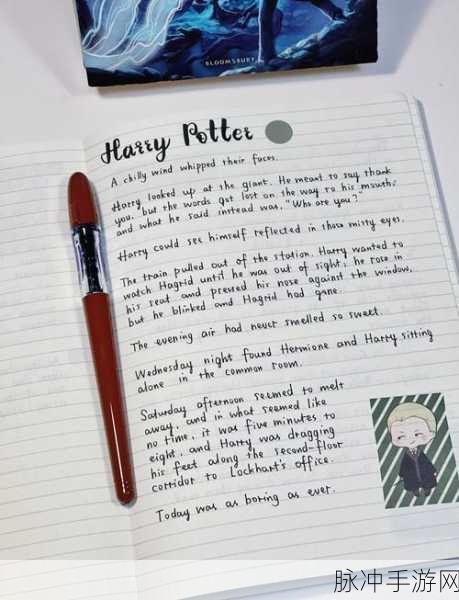 BLOOMSBURY
Harry Potter
A chilly wind whipped their faces.
Harry looked up at the giant. He meant to say thank
you, but the words got lost on the way to his mouth,
and what he said instead was, "Who are you?"
Harry could see himself reflected in those misty eyes.
The train pulled out of the station. Harry wanted to
watch Hagrid until he was out of sight; he rose in
his seat and pressed his nose against the window,
but he blinked and Hagrid had gone.
The evening air had never smelled so sweet.
Wednesday night found Hermione and Harry sitting
alone in the common room.
Saturday afternoon seemed to melt
away, and in what seemed like
no time, it was five minutes to
eight, and Harry was dragging
his feet along the second-floor
corridor to Lockhart's office.
Today was as boring as ever.
脉冲手游网
www.pmaxchina.com